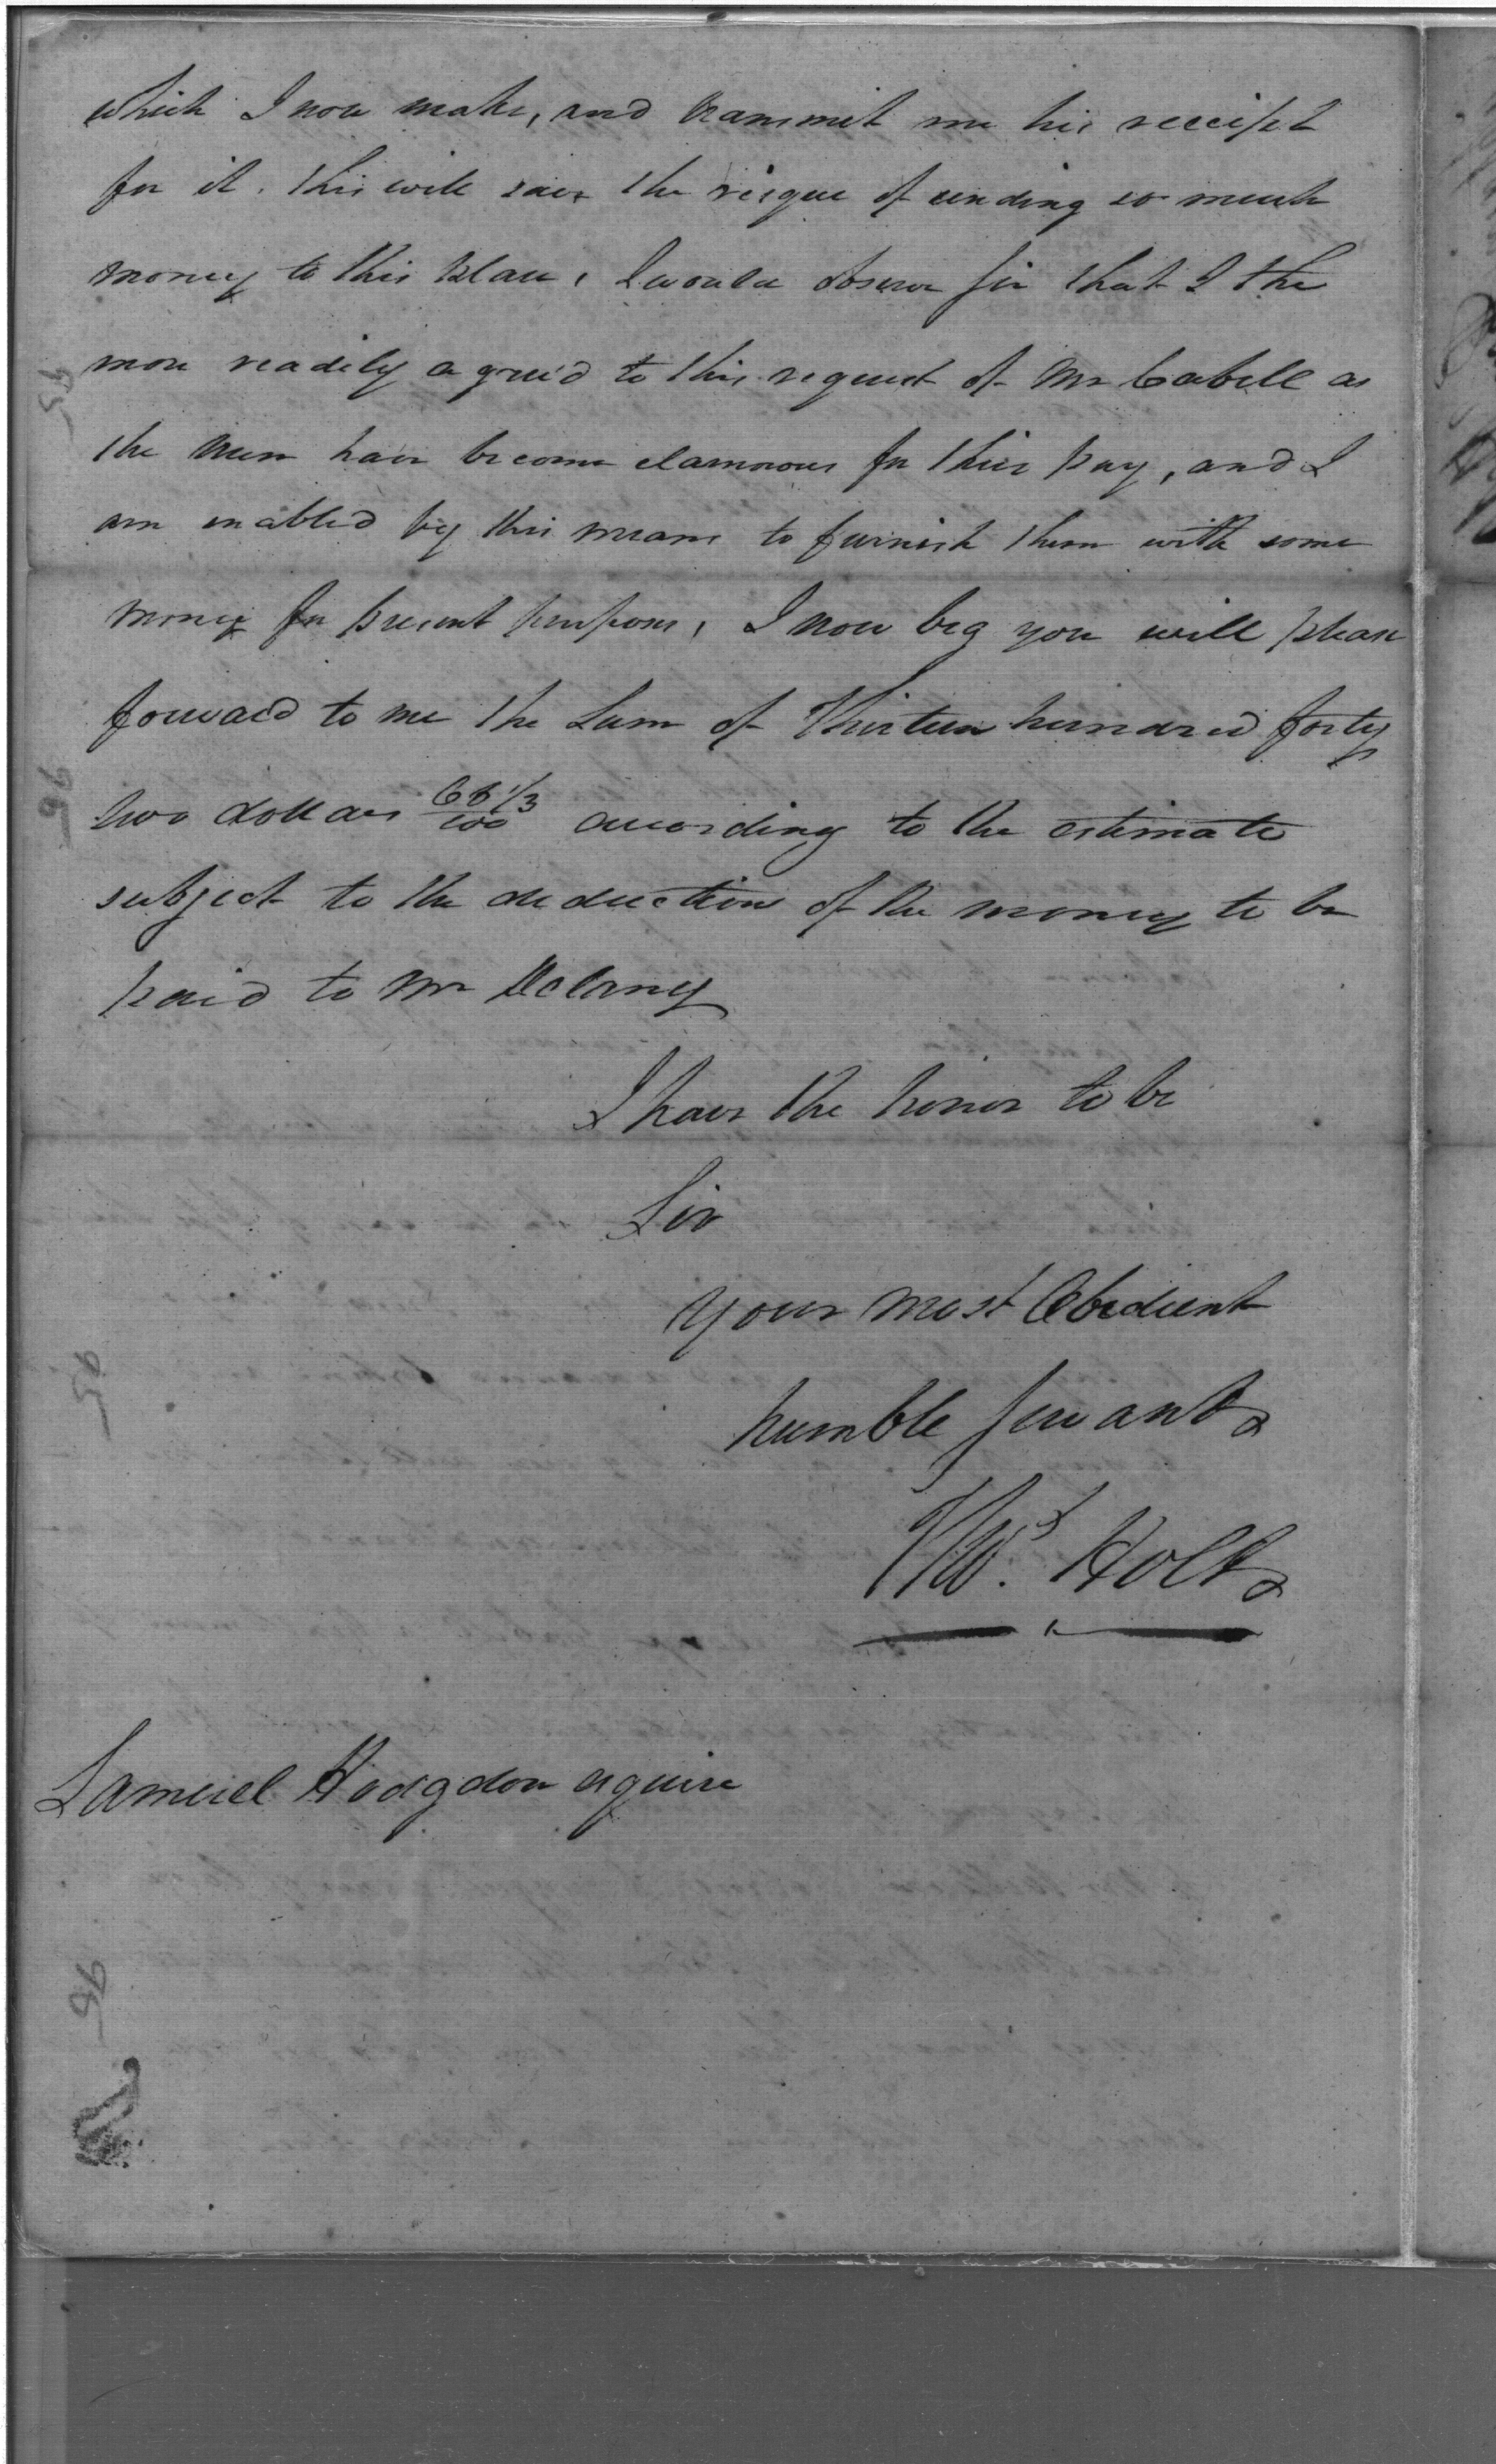 which I now make, and transmit me his receipt
for it. this will save the risque of sending so much
money to this place, I would observe Sir that I the
more readily agree'd to this request of Mr Cabell as
the Men have become clamorous for their pay, and I
am enabled by this means to furnish them with some
money for present purposes, I now beg you will please
forward to me the Sum of Thirteen hundred forty
two dollars 66 1/3/100 according to the estimate
subject to the deduction of the money to be
paid to Mr Delany
I have the honor to be
Sir
your most Obedient
humble Servant
Thos. Holt
Samuel Hodgdon esquire